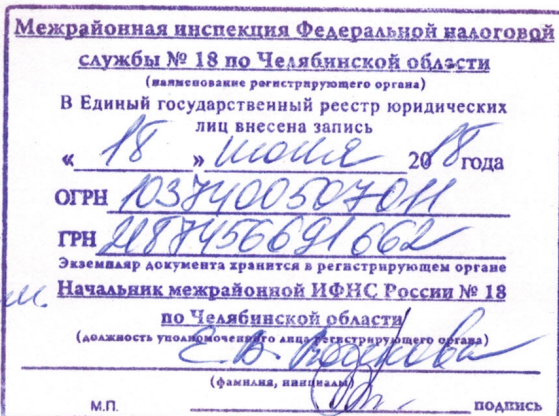 Межрайонная инспекция Федеральной налоговой
службы № 18 по Челябинской области
(наименование регистрирующего органа)
В Единый государственный реестр юридических
лиц внесена запись
« 18 » июня 2018 года
ОГРН 1037400507011
ГРН 2187456691662
Экземпляр документа хранится в регистрирующем органе
Начальник межрайонной ИФНС России № 18
по Челябинской области
(должность уполномоченного лица регистрирующего органа)
Е.В.
(фамилия, инициалы)
М.П. подпись